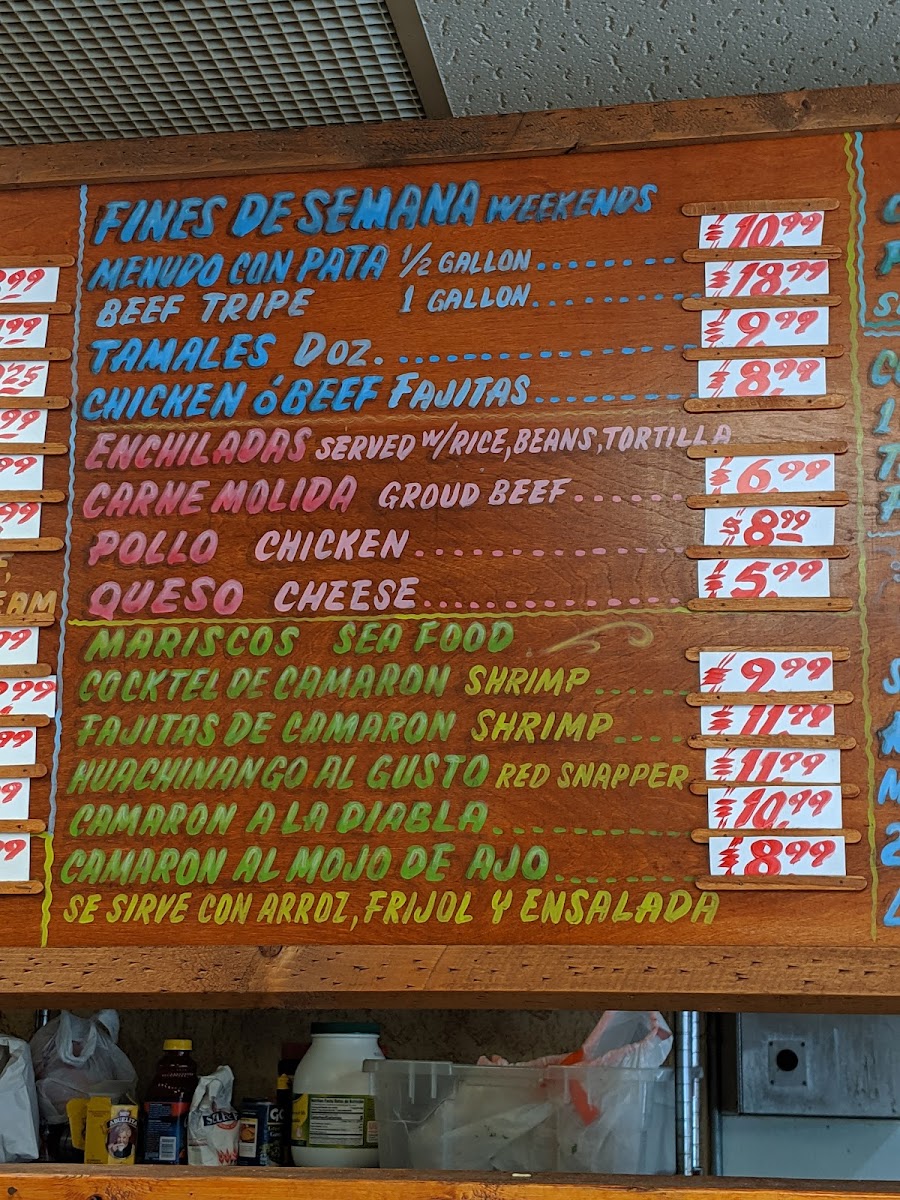 FINES DE SEMANA WEEKENDS
MENUDO CON PATA 1/2 GALLON........ $10.99
BEEF TRIPE 1 GALLON........ $18.99
TAMALES DOZ. ........ $9.99
CHICKEN ó BEEF FAJITAS........ $8.99
ENCHILADAS SERVED W/RICE, BEANS, TORTILLA
CARNE MOLIDA GROUD BEEF........ $6.99
POLLO CHICKEN........ $8.99
QUESO CHEESE........ $5.99
MARISCOS SEA FOOD
COCKTEL DE CAMARON SHRIMP........ $9.99
FAJITAS DE CAMARON SHRIMP.... $11.99
HUACHINANGO AL GUSTO RED SNAPPER $11.99
CAMARON A LA DIABLA........ $10.99
CAMARON AL MOJO DE AJO........ $8.99
SE SIRVE CON ARROZ, FRIJOL Y ENSALADA